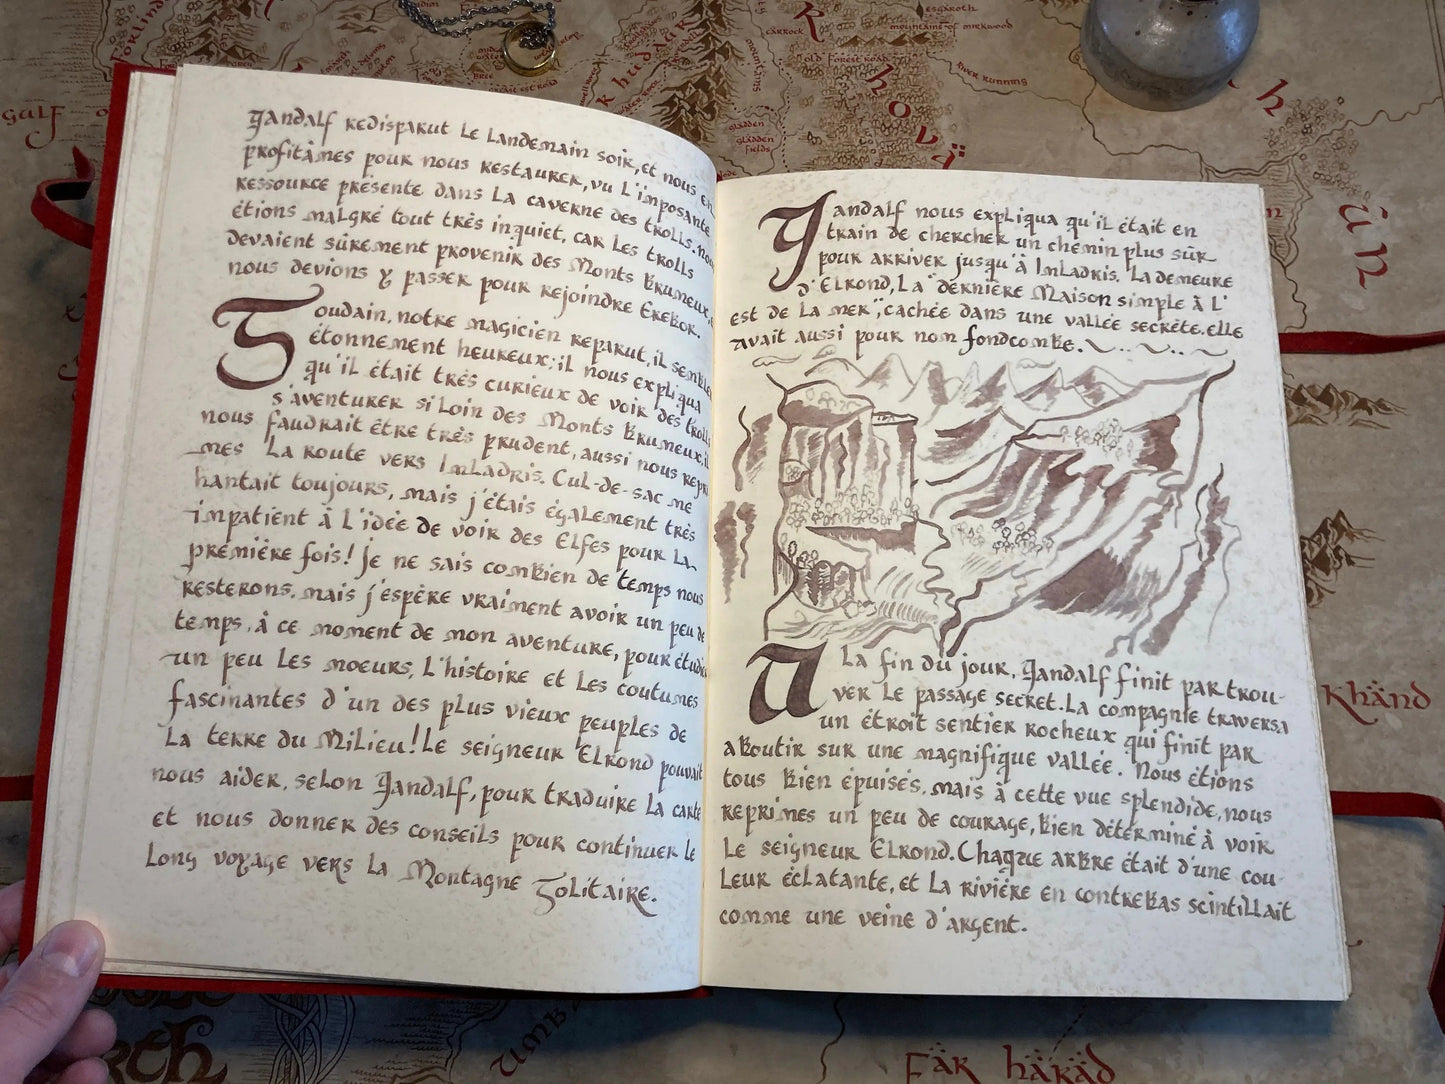 Gandalf redisparut le landemain soir, et nous en
profitâmes pour nous restaurer, vu l'imposante
ressource présente dans la caverne des trolls. Nous
étions malgré tout très inquiet, car les trolls
devaient sûrement provenir des Monts Brumeux, et
nous devions y passer pour rejoindre Erebor.
Soudain, notre magicien reparut, il semblait
étonnement heureux; il nous expliqua
qu'il était très curieux de voir des trolls
s'aventurer si loin des Monts Brumeux, il
nous faudrait être très prudent, aussi nous repri
mes la route vers Imladris. Cul-de-sac me
hantait toujours, mais j'étais également très
impatient à l'idée de voir des Elfes pour la
première fois! Je ne sais combien de temps nous
resterons, mais j'espère vraiment avoir un peu de
temps, à ce moment de mon aventure, pour étudier
un peu les moeurs, l'histoire et les coutumes
fascinantes d'un des plus vieux peuples de
la terre du Milieu! Le seigneur Elrond pouvait
nous aider, selon Gandalf, pour traduire la carte
et nous donner des conseils pour continuer le
long voyage vers la Montagne Solitaire.
Gandalf nous expliqua qu'il était en
train de chercher un chemin plus sûr
pour arriver jusqu'à Imladris. La demeure
d'Elrond, la "dernière Maison simple à l'
est de la mer", cachée dans une vallée secrète, elle
avait aussi pour nom fondcombe.
A la fin du jour, Gandalf finit par trou-
ver le passage secret. La compagnie traversa
un étroit sentier rocheux qui finit par
aboutir sur une magnifique vallée. Nous étions
tous bien épuisés, mais à cette vue splendide, nous
reprimes un peu de courage, bien déterminé à voir
le seigneur Elrond. Chaque arbre était d'une cou-
leur éclatante, et la rivière en contrebas scintillait
comme une veine d'argent.
Esgaroth
Carrock
Mountains of Mirkwood
Old Forest Road
River Running
Gladden
Gladden
Fields
Rhovan
Gulf of
Bree
Khudaur
Rh
ûn
Khând
Far Harad
Umba